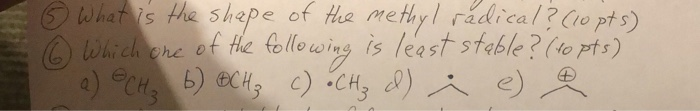 ⑤ What is the shape of the methyl radical? (10 pts)
⑥ Which one of the following is least stable? (10 pts)
a) ⊖CH₃ b) ⊕CH₃ c) •CH₃ d) e) ⊕